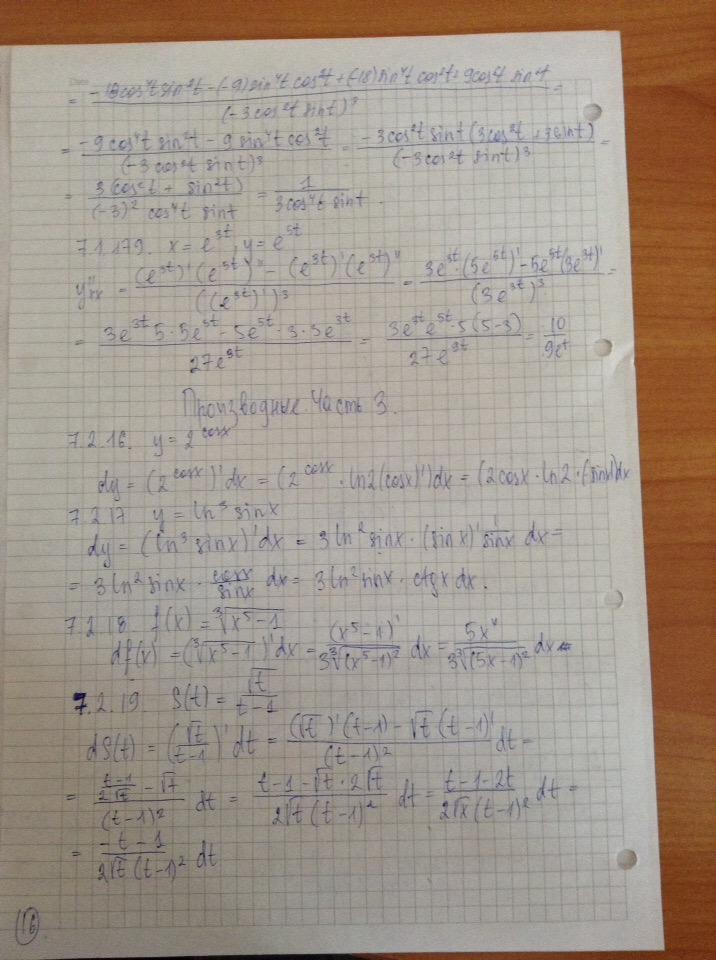 = (-18cos⁴t sin²t - (-9)sin⁴t cos²t + (-18)sin⁴t cos²t + 9cos⁴t sin²t)/(-3cos²t sint)³ =
= (-9cos⁴t sin²t - 9sin⁴t cos²t)/(-3cos²t sint)³ = (-3cos²t sint(3cos²t + 3sint))/(-3cos²t sint)³ =
= 3(cos²t + sin²t)/((-3)² cos⁴t sint) = 1/(3cos⁴t sint).
7.1.179. x = e^{3t}, y = e^{5t}
y''ₓₓ = ((e^{3t})'(e^{5t})'' - (e^{5t})'(e^{3t})'')/((e^{3t})')³ = (3e^{3t}·(5e^{5t})' - 5e^{5t}(3e^{3t})')/(3e^{3t})³ =
= (3e^{3t}·5·5e^{5t} - 5e^{5t}·3·3e^{3t})/(27e^{3t}) = (3e^{3t}e^{5t}·5(5-3))/(27e^{3t}) = 10/(9e^t)
Производные. Часть 3.
7.2.16. y = 2^{cosx}
dy = (2^{cosx})'dx = (2^{cosx}·ln2(cosx)')dx = (2cosx·ln2·(-sinx))dx
7.2.17 y = ln³ sinx
dy = (ln³ sinx)'dx = 3ln² sinx·(sinx)' 1/sinx dx =
= 3ln² sinx · cosx/sinx dx = 3ln² sinx · ctgx dx.
7.2.18. f(x) = ∛(x⁵-1)
df(x) = (∛(x⁵-1))'dx = (x⁵-1)'/(3∛(x⁵-1)²) dx = 5x⁴/(3∛(5x-1)²) dx
7.2.19. S(t) = √t/(t-1)
dS(t) = (√t/(t-1))' dt = ((√t)'(t-1) - √t(t-1)')/(t-1)² dt =
= ((t-1)/(2√t) - √t)/(t-1)² dt = (t-1-√t·2√t)/(2√t(t-1)²) dt = (t-1-2t)/(2√x(t-1)²) dt =
= (-t-1)/(2√t(t-1)²) dt
16